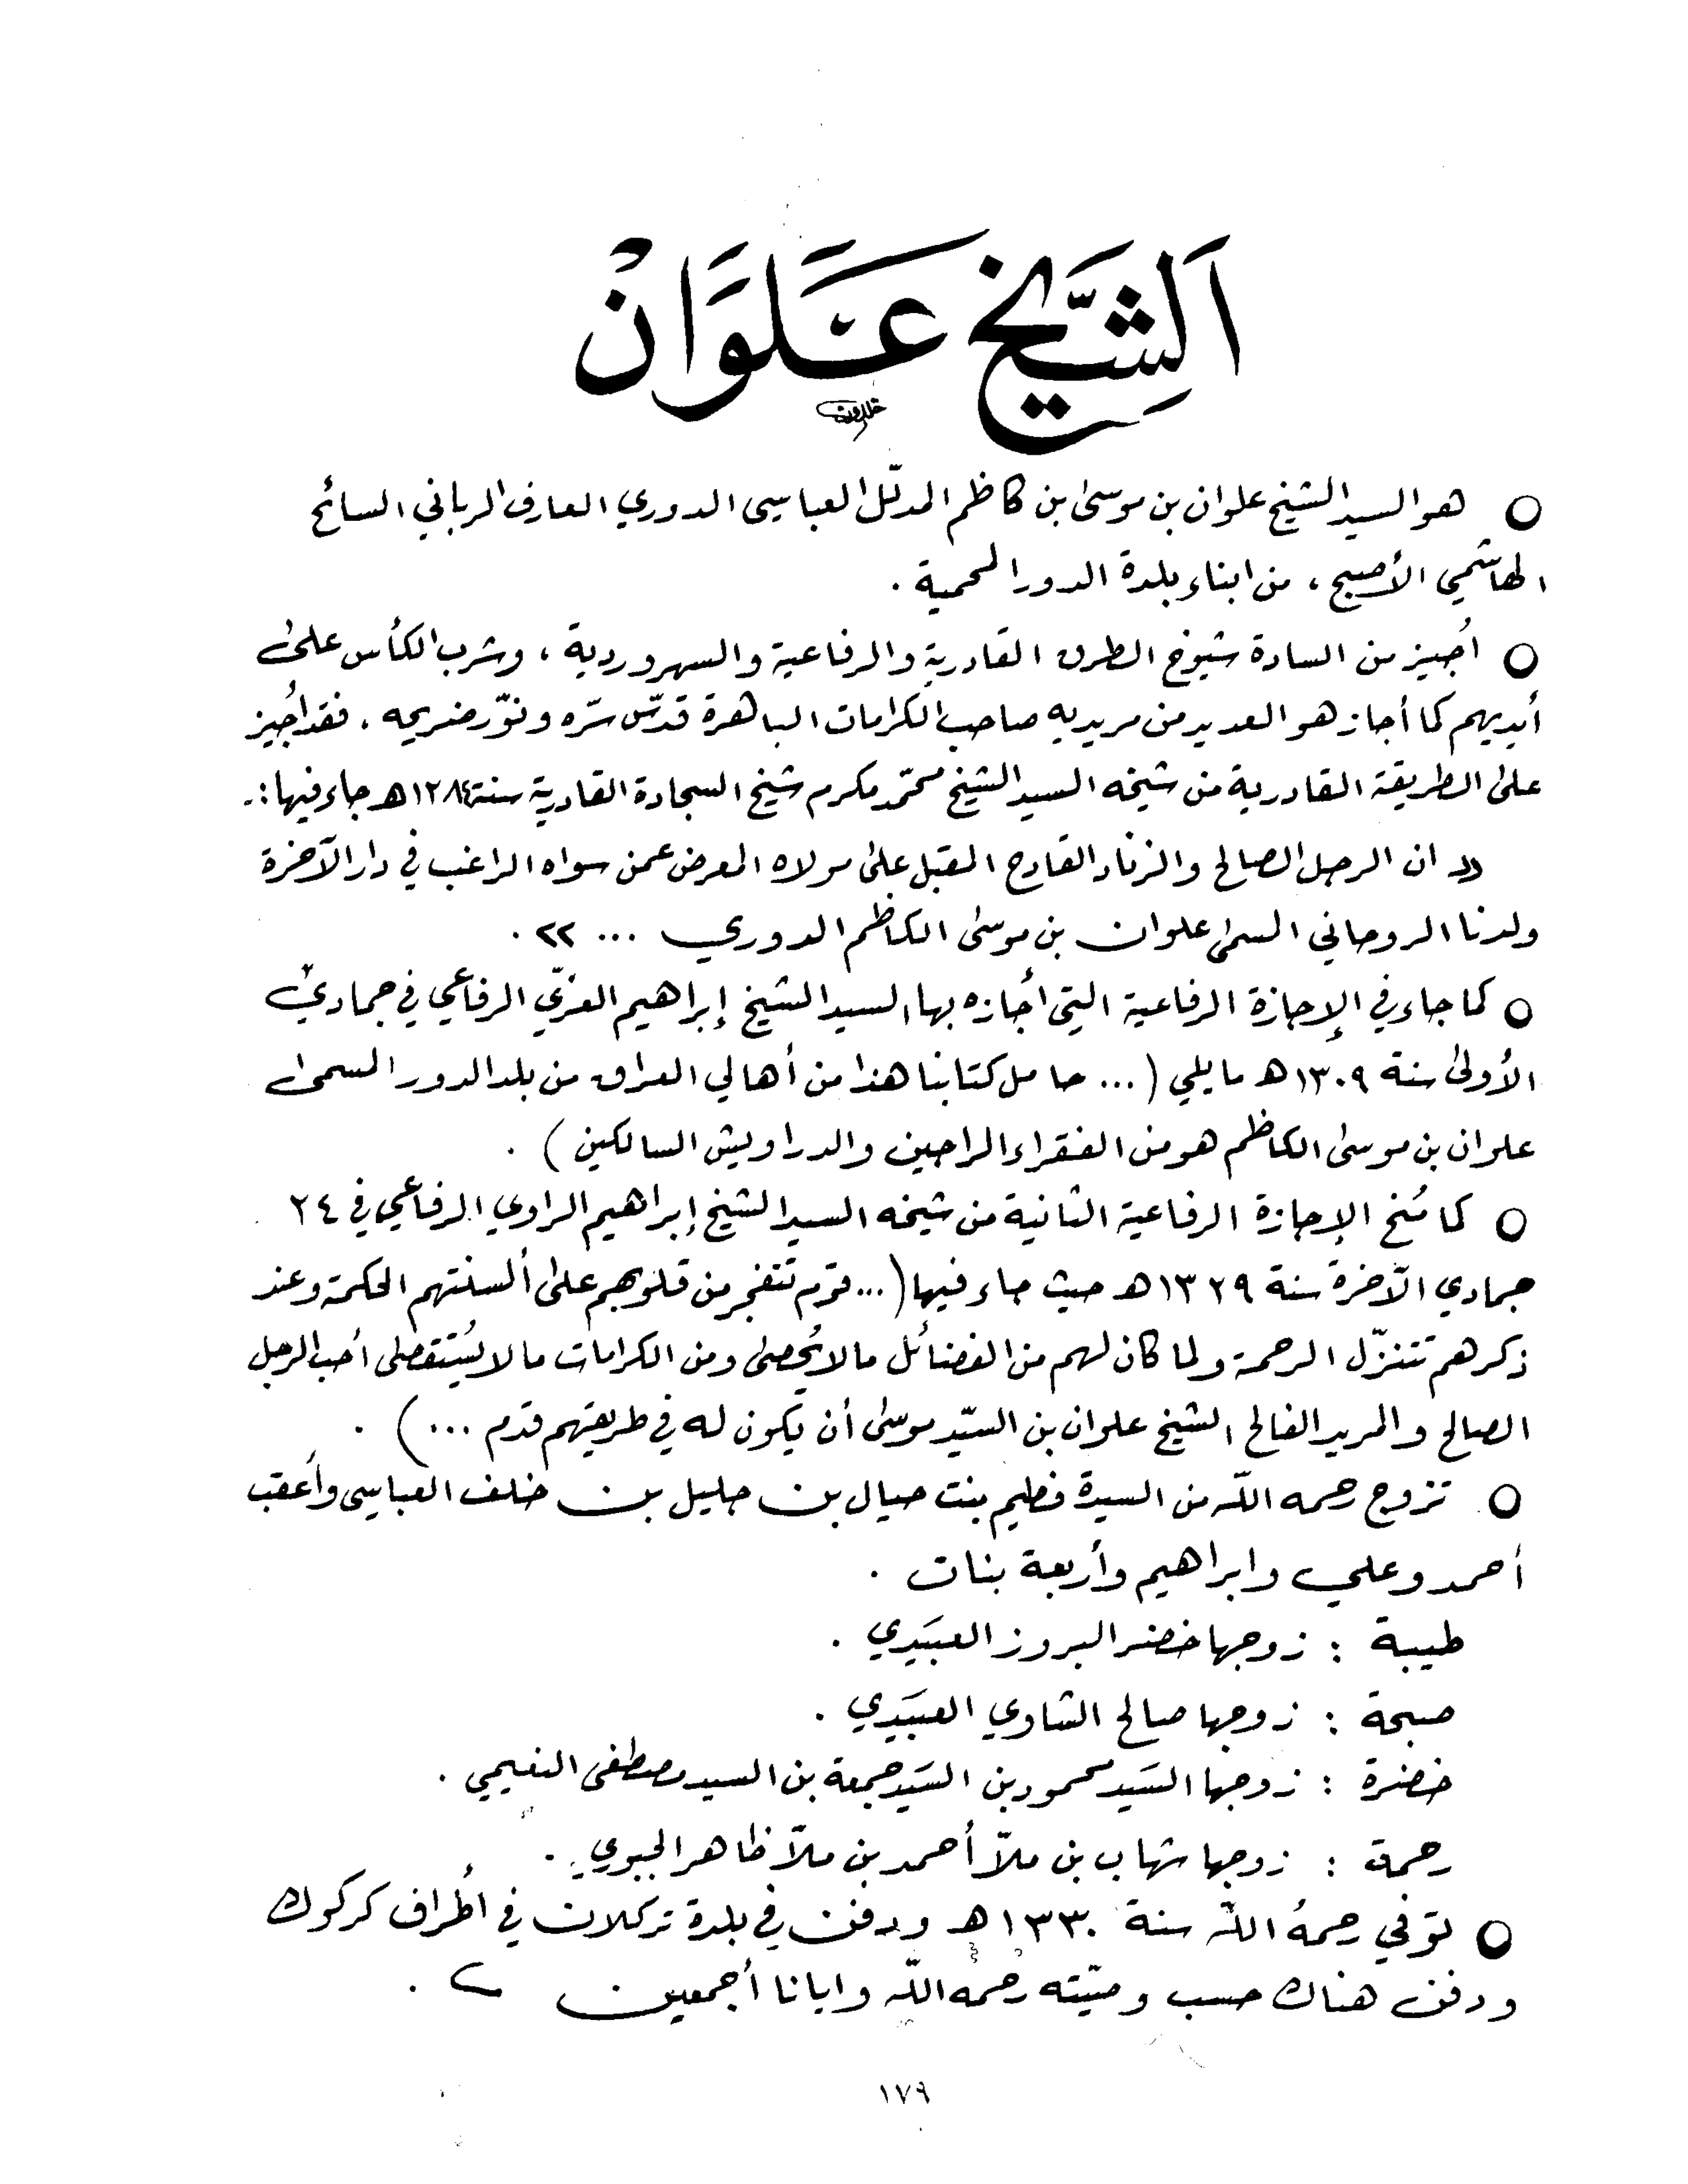 اَلشَّيْخ عَلَوَانْ
خلدون
○ هو السيد الشيخ علوان بن موسىٰ بن كاظم المدلّل العباسي الدوري العارف الرباني السائح
الهاشمي الأصبح ، من ابناء بلدة الدور المحمية .
○ اُجيز من السادة شيوخ الطرق القادرية والرفاعية والسهروردية ، وشرب الكأس علىٰ
أيديهم كما أجاز هو العديد من مريديه صاحب الكرامات الباهرة قدّس سّره ونوّر ضريحه . فقد اُجيز
علىٰ الطريقة القادرية من شيخه السيد الشيخ محمّد مكرم شيخ السجادة القادرية سنة ١٢٨٤هـ جاء فيها :ـ
(( ان الرجل الصالح والزناد القادح المقبل علىٰ مولاه المعرض عمن سواه الراغب في دار الآخرة
ولدنا الروحاني المسمىٰ علوان بن موسىٰ الكاظم الدوري ... )) .
○ كما جاء في الإجازة الرفاعية التي أجازه بها السيد الشيخ إبراهيم الغزّي الرفاعي في جمادىٰ
الأولىٰ سنة ١٣٠٩هـ ما يلي (... حامل كتابنا هذا من أهالي العراق من بلد الدور المسمىٰ
علوان بن موسىٰ الكاظم هو من الفقراء الراجين والدراويش السالكين ) .
○ كما مُنح الإجازة الرفاعية الثانية من شيخه السيد الشيخ إبراهيم الراوي الرفاعي في ٢٤
جمادي الآخرة سنة ١٣٢٩هـ حيث جاء فيها (... قوم تتفجر من قلوبهم علىٰ ألسنتهم الحكمة وعند
ذكرهم تتنزّل الرحمة ولما كان لهم من الفضائل ما لا يُحصىٰ ومن الكرامات ما لا يُستقصىٰ أحب الرجل
الصالح والمريد الفالح الشيخ علوان بن السيّد موسىٰ أن يكون له في طريقتهم قدم ... ) .
○ تزوج رحمه اللّه من السيدة فطيم بنت حيال بن جليل بن خلف العباسي وأعقب
أحمد وعلي وابراهيم وأربعة بنات .
طيبة : زوجها خضر البروز العبَيدي .
صبحة : زوجها صالح الشاوي العبَيدي .
خضرة : زوجها السَيد محمود بن السَيد جمعة بن السيد مصطفى النعيمي .
رحمة : زوجها شهاب بن ملاّ أحمد بن ملاّ ظاهر الجبوري .
○ توفي رحمهُ اللّه سنة ١٣٣٠هـ ودفن في بلدة تركلان في أطراف كركوك
ودفن هناك حسب وصّيته رحمه اللّه وايانا أجمعين .
١٧٩